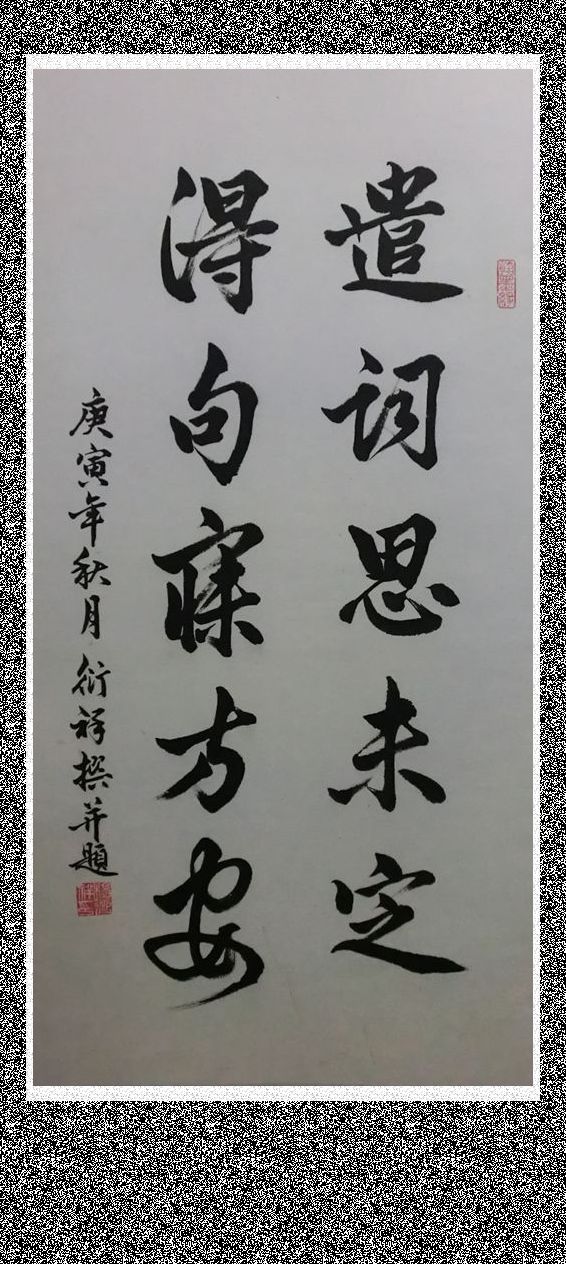 遣词思未定
得句寐方安
庚寅年秋月衍祥撰并题